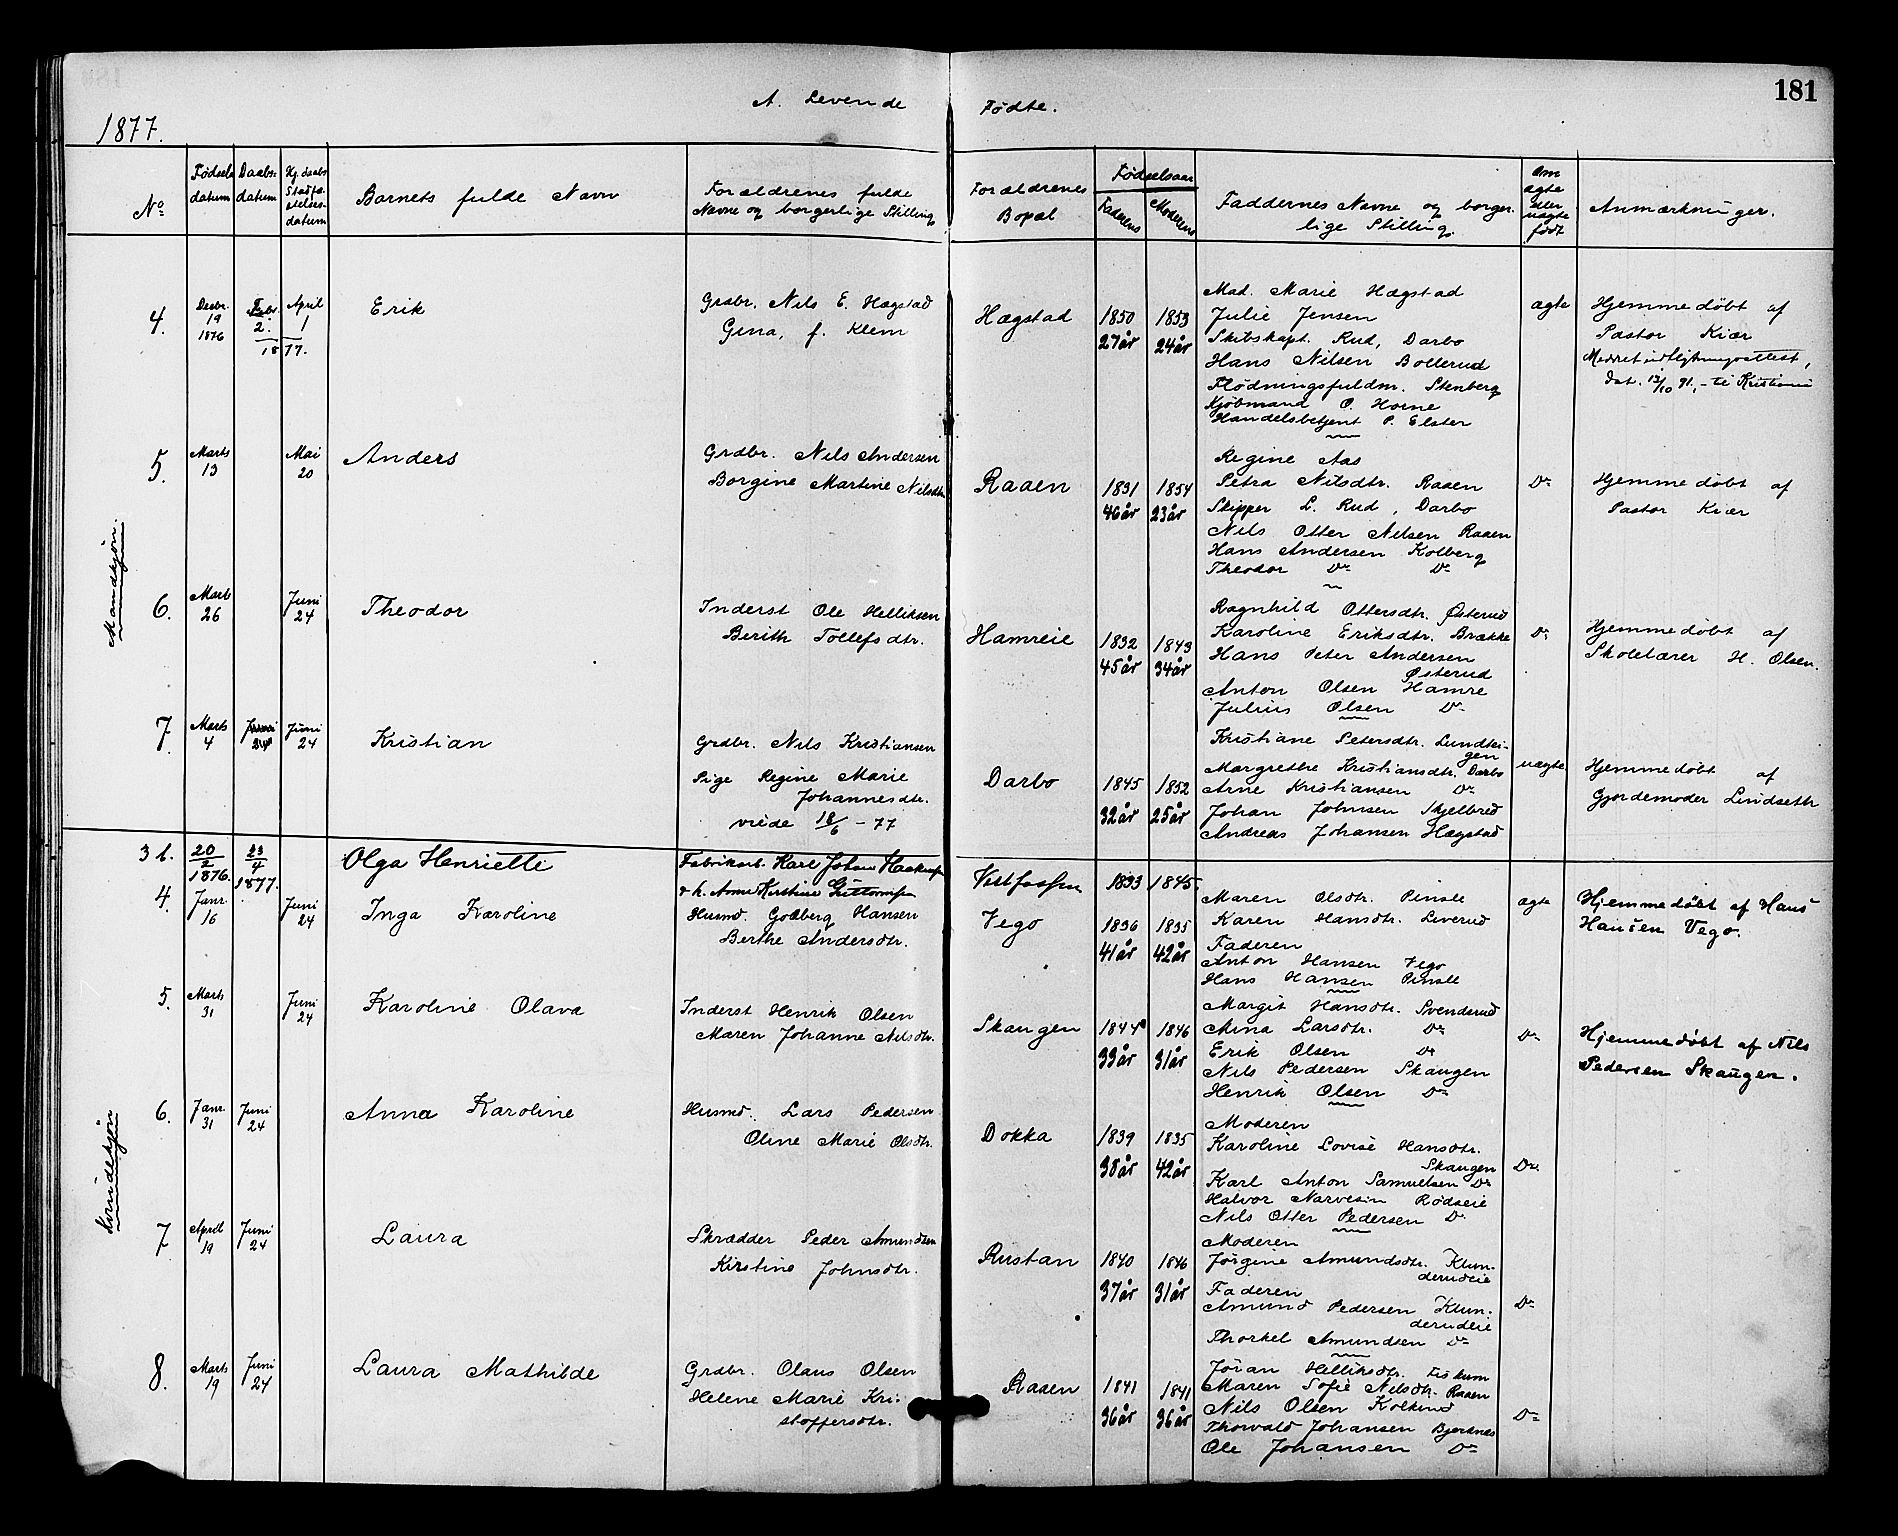 181
A. Levende Fødte.
1877.
No
Fødsels datum
Daabs: datum
Hj. daabs Stadfæstelses-datum
Barnets fulde Navn
Forældrenes fulde
Navne og borgerlige Stilling
Forældrenes
Bopæl
Fødselsaar
Faderens
Moderens
Faddernes Navne og borger
lige Stilling.
Om ægte eller uægte født
Anmærkninger.
Mandkjøn.
4.
Decbr. 19 1876
Febr. 2.
April 1
1877.
Erik
Grdbr. Nils E. Hægstad
Gina, f. Klem
Hægstad
1850 1853
27år 24år
Mad. Marie Hægstad
Julie Jensen
Skibskapt. Rud, Darbo
Hans Nilsen Bollerud
Flödningsfuldm. Stenberg
Kjöbmand O. Horne
Handelsbetjent P. Elster
ægte
Hjemmedöbt af
Pastor Kiær
Meddelt udflytningsattest,
dat. 13/10 91. - til Kristiania
5.
Marts 13
Mai 20
Anders
Grdbr. Nils Andersen
Borgine Martine Nilsdtr.
Raaen
1831 1854
46år 23år
Regine Aas
Petra Nilsdtr. Raaen
Skipper L. Rud, Darbo
Nils Otter Nilsen Raaen
Hans Andersen Kolberg
Theodor Do Do
Do
Hjemmedöbt af
Pastor Kiær
6.
Marts 26
Juni 24
Theodor
Inderst Ole Helliksen
Berith Tollefsdtr.
Hamreie
1832 1843
45år 34år
Ragnhild Ottersdtr. Østerud
Karoline Eriksdtr. Brække
Hans Peter Andersen
Østerud
Anton Olsen Hamre
Julius Olsen Do
Do
Hjemmedöbt af
Skolelærer H. Olsen.
7.
Marts 4
Juni 24
Juni 24
Kristian
Grdbr. Nils Kristiansen
Pige Regine Marie
Johannesdtr.
viede 18/6 - 77
Darbo
1845 1852
32år 25år
Kristiane Petersdtr. Lundtei-
gen
Margrethe Kristiansdtr. Darbo
Arne Kristiansen Do
Johan Johnsen Skjelbred
Andreas Johansen Hægstad
uægte
Hjemmedöbt af
Gjordemoder Lindseth
Kvindekjøn
3 b.
20/2 1876.
23/4 1877.
Olga Henriette
Fabrikarb. Karl Johan
& h. Anne Kirstine Guttormsen
Vestfossen
1833 1845.
4.
Janr. 16
Juni 24
Inga Karoline
Husmd. Golberg Hansen
Berthe Andersdtr.
Vego
1836 1835
41år 42år
Maren Olsdtr. Pinsle
Karen Hansdtr. Liverud
Faderen
Anton Hansen Vego
Hans Hansen Pinsle
ægte
Hjemmedöbt af Hans
Hansen Vego.
5.
Marts 31
Juni 24
Karoline Olava
Inderst Henrik Olsen
Maren Johanne Nilsdtr.
Skaugen
1844 1846
33år 31år
Margit Hansdtr. Svenderud
Anna Larsdtr. Do
Erik Olsen Do
Nils Pedersen Skaugen
Henrik Olsen Do
Do
Hjemmedöbt af Nils
Pedersen Skaugen.
6.
Janr. 31
Juni 24
Anna Karoline
Husmd. Lars Pedersen
Oline Marie Olsdtr.
Dokka
1839 1835
38år 42år
Moderen
Karoline Lovise Hansdtr.
Skaugen
Karl Anton Samuelsen Do
Halvor Narvesen Rødseie
Nils Otter Pedersen Do
Do
7
April 19
Juni 24
Laura
Skrædder Peder Amundsen
Kirstine Johnsdtr.
Rustan
1840 1846
37år 31år
Moderen
Jørgine Amundsdtr. Klun-
derudeie
Faderen
Amund Pedersen Klun-
derudeie
Thorkel Amundsen Do
Do
8.
Marts 19
Juni 24
Laura Mathilde
Grdbr. Olaus Olsen
Helene Marie Kri-
stoffersdtr.
Raaen
1841 1841
36år 36år
Jöran Helliksdtr. Fiskum
Maren Sofie Nilsdtr. Raaen
Nils Olsen Kolkind
Thorvald Johansen Bjertnæs
Ole Johansen Do
Do